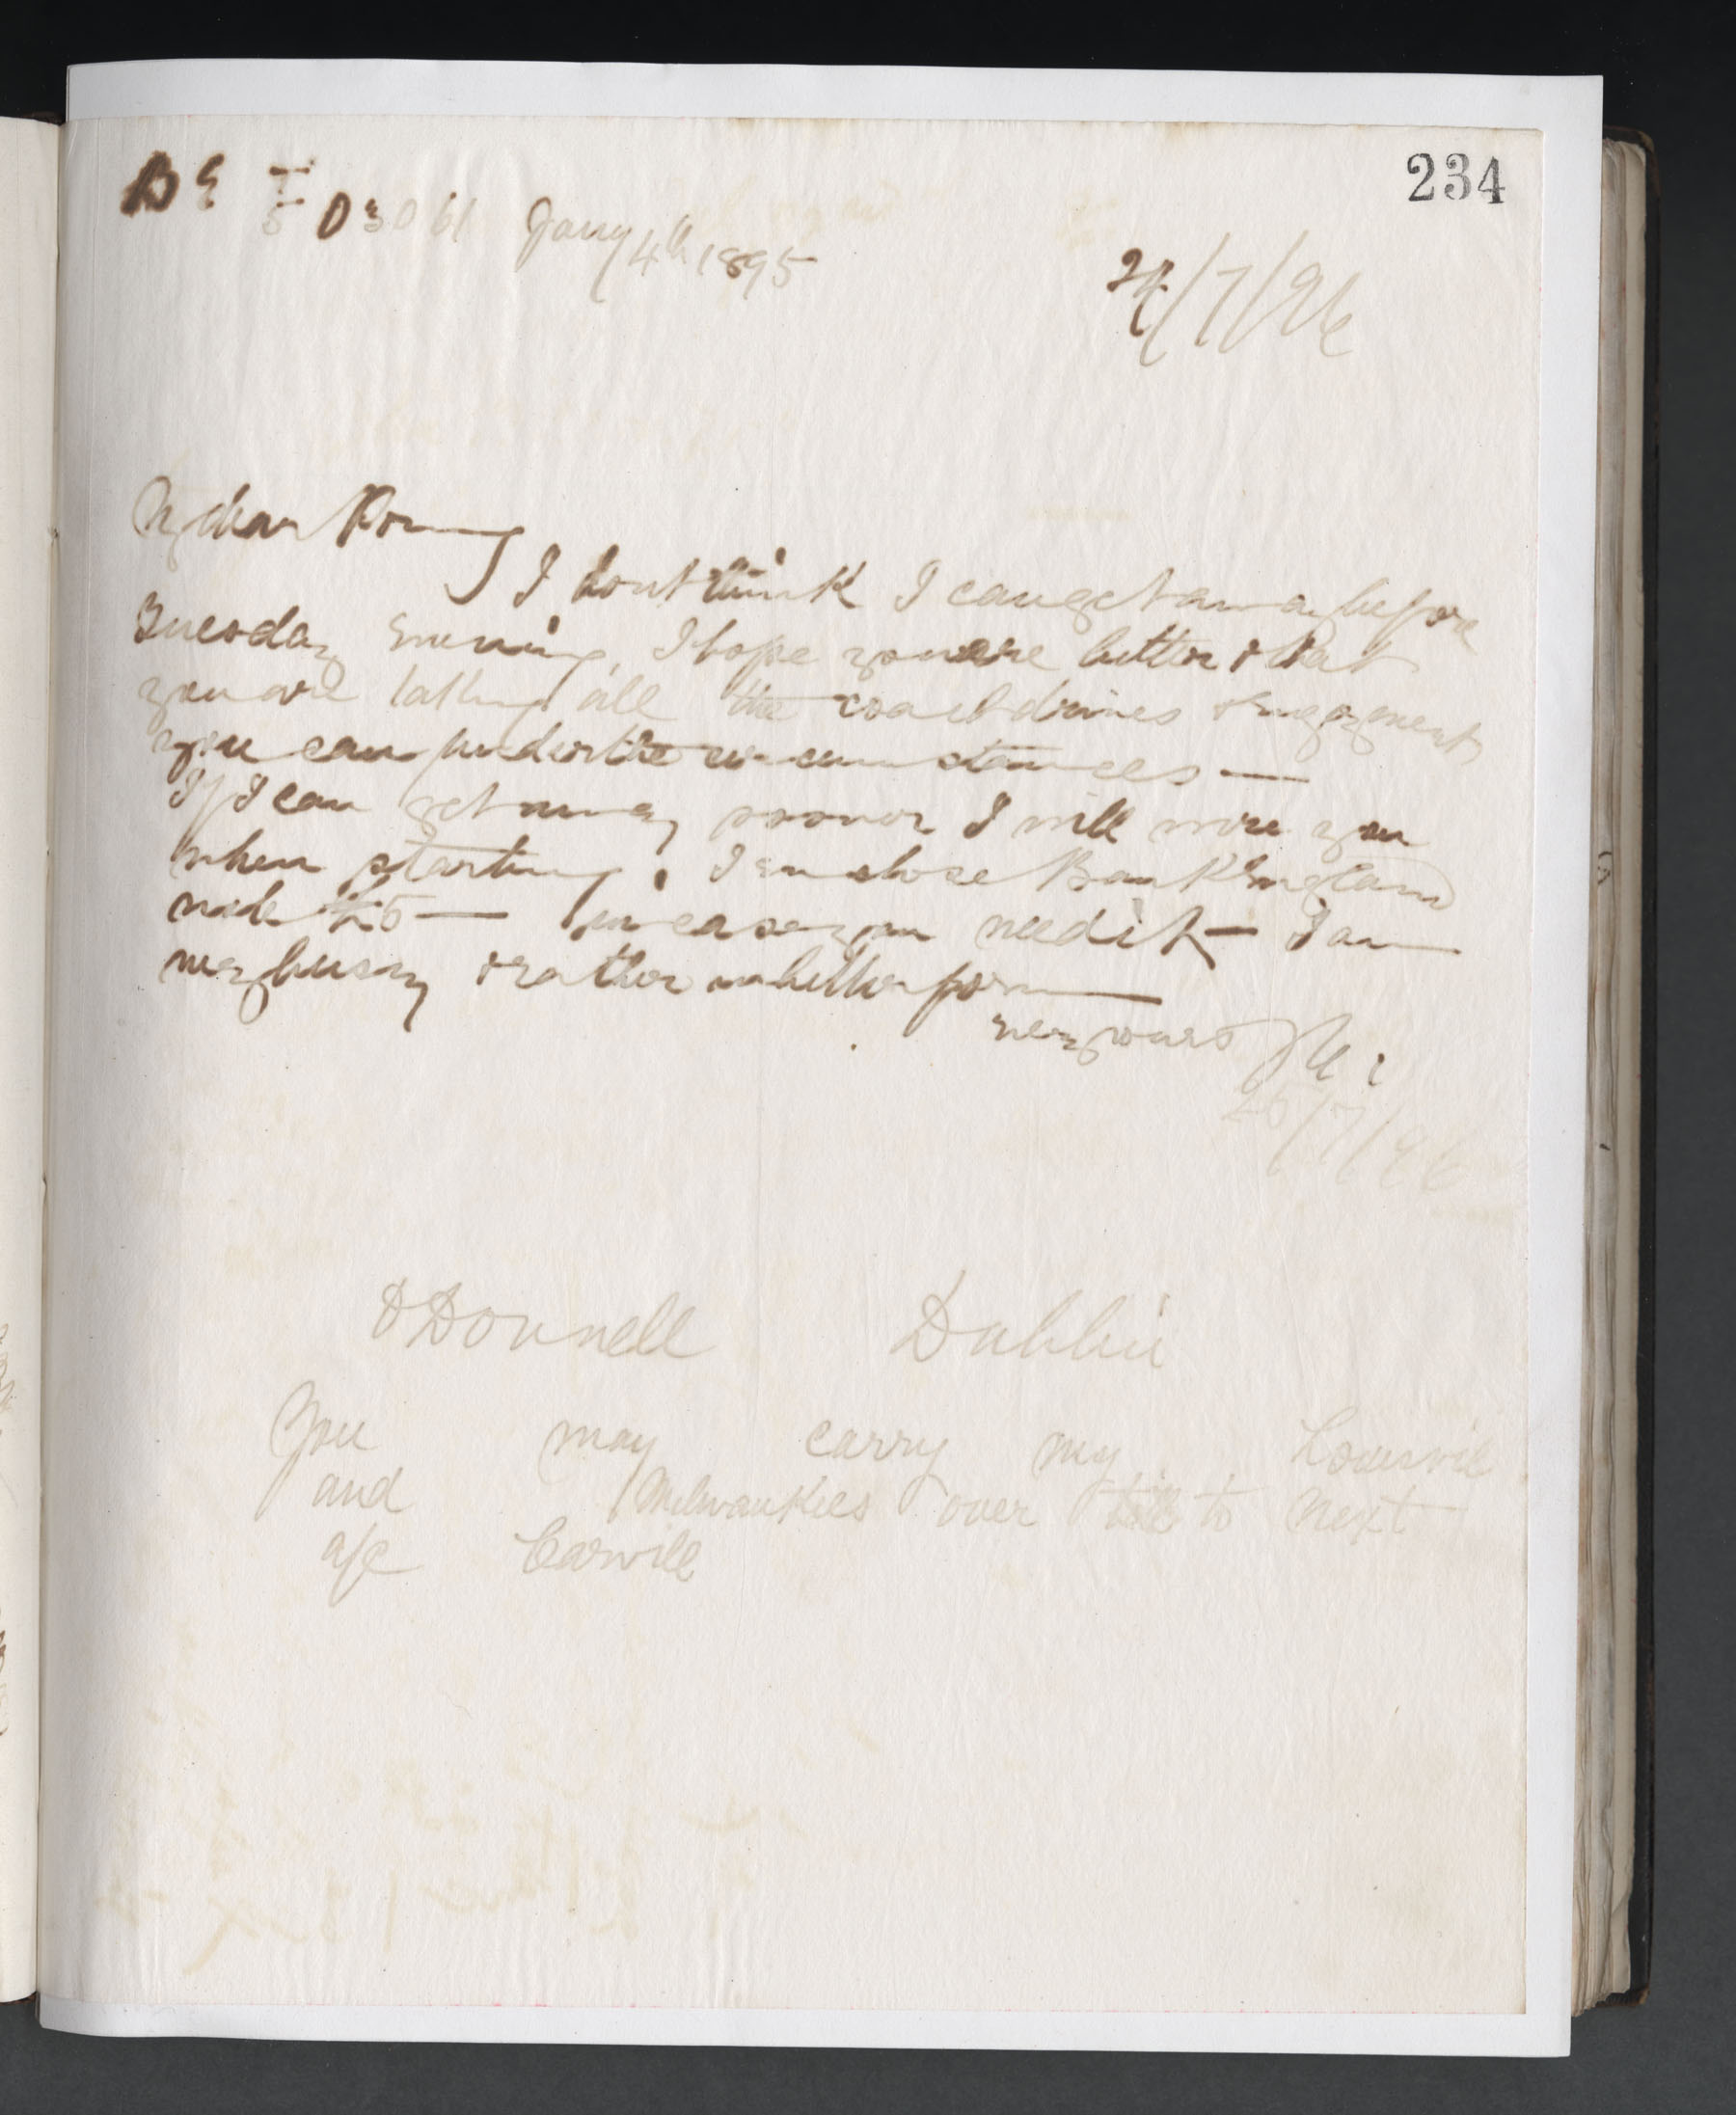 234
BE 5 03061 Jany 4th 1895
24/7/96
My dear
I dont think I can get away before
Tuesday Evening, I hope you are better & that
you are taking all the coach drives & engagements
you can under the circumstances —
If I can get away sooner I will wire you
when starting. I enclose Bank England
note £5 — in case you need it — I am
very busy & rather in better form —
very yours
25/7/96
O'Donnell Dublin
You may carry my Louisvile
and Milwaukees over to next
a/c Carvill